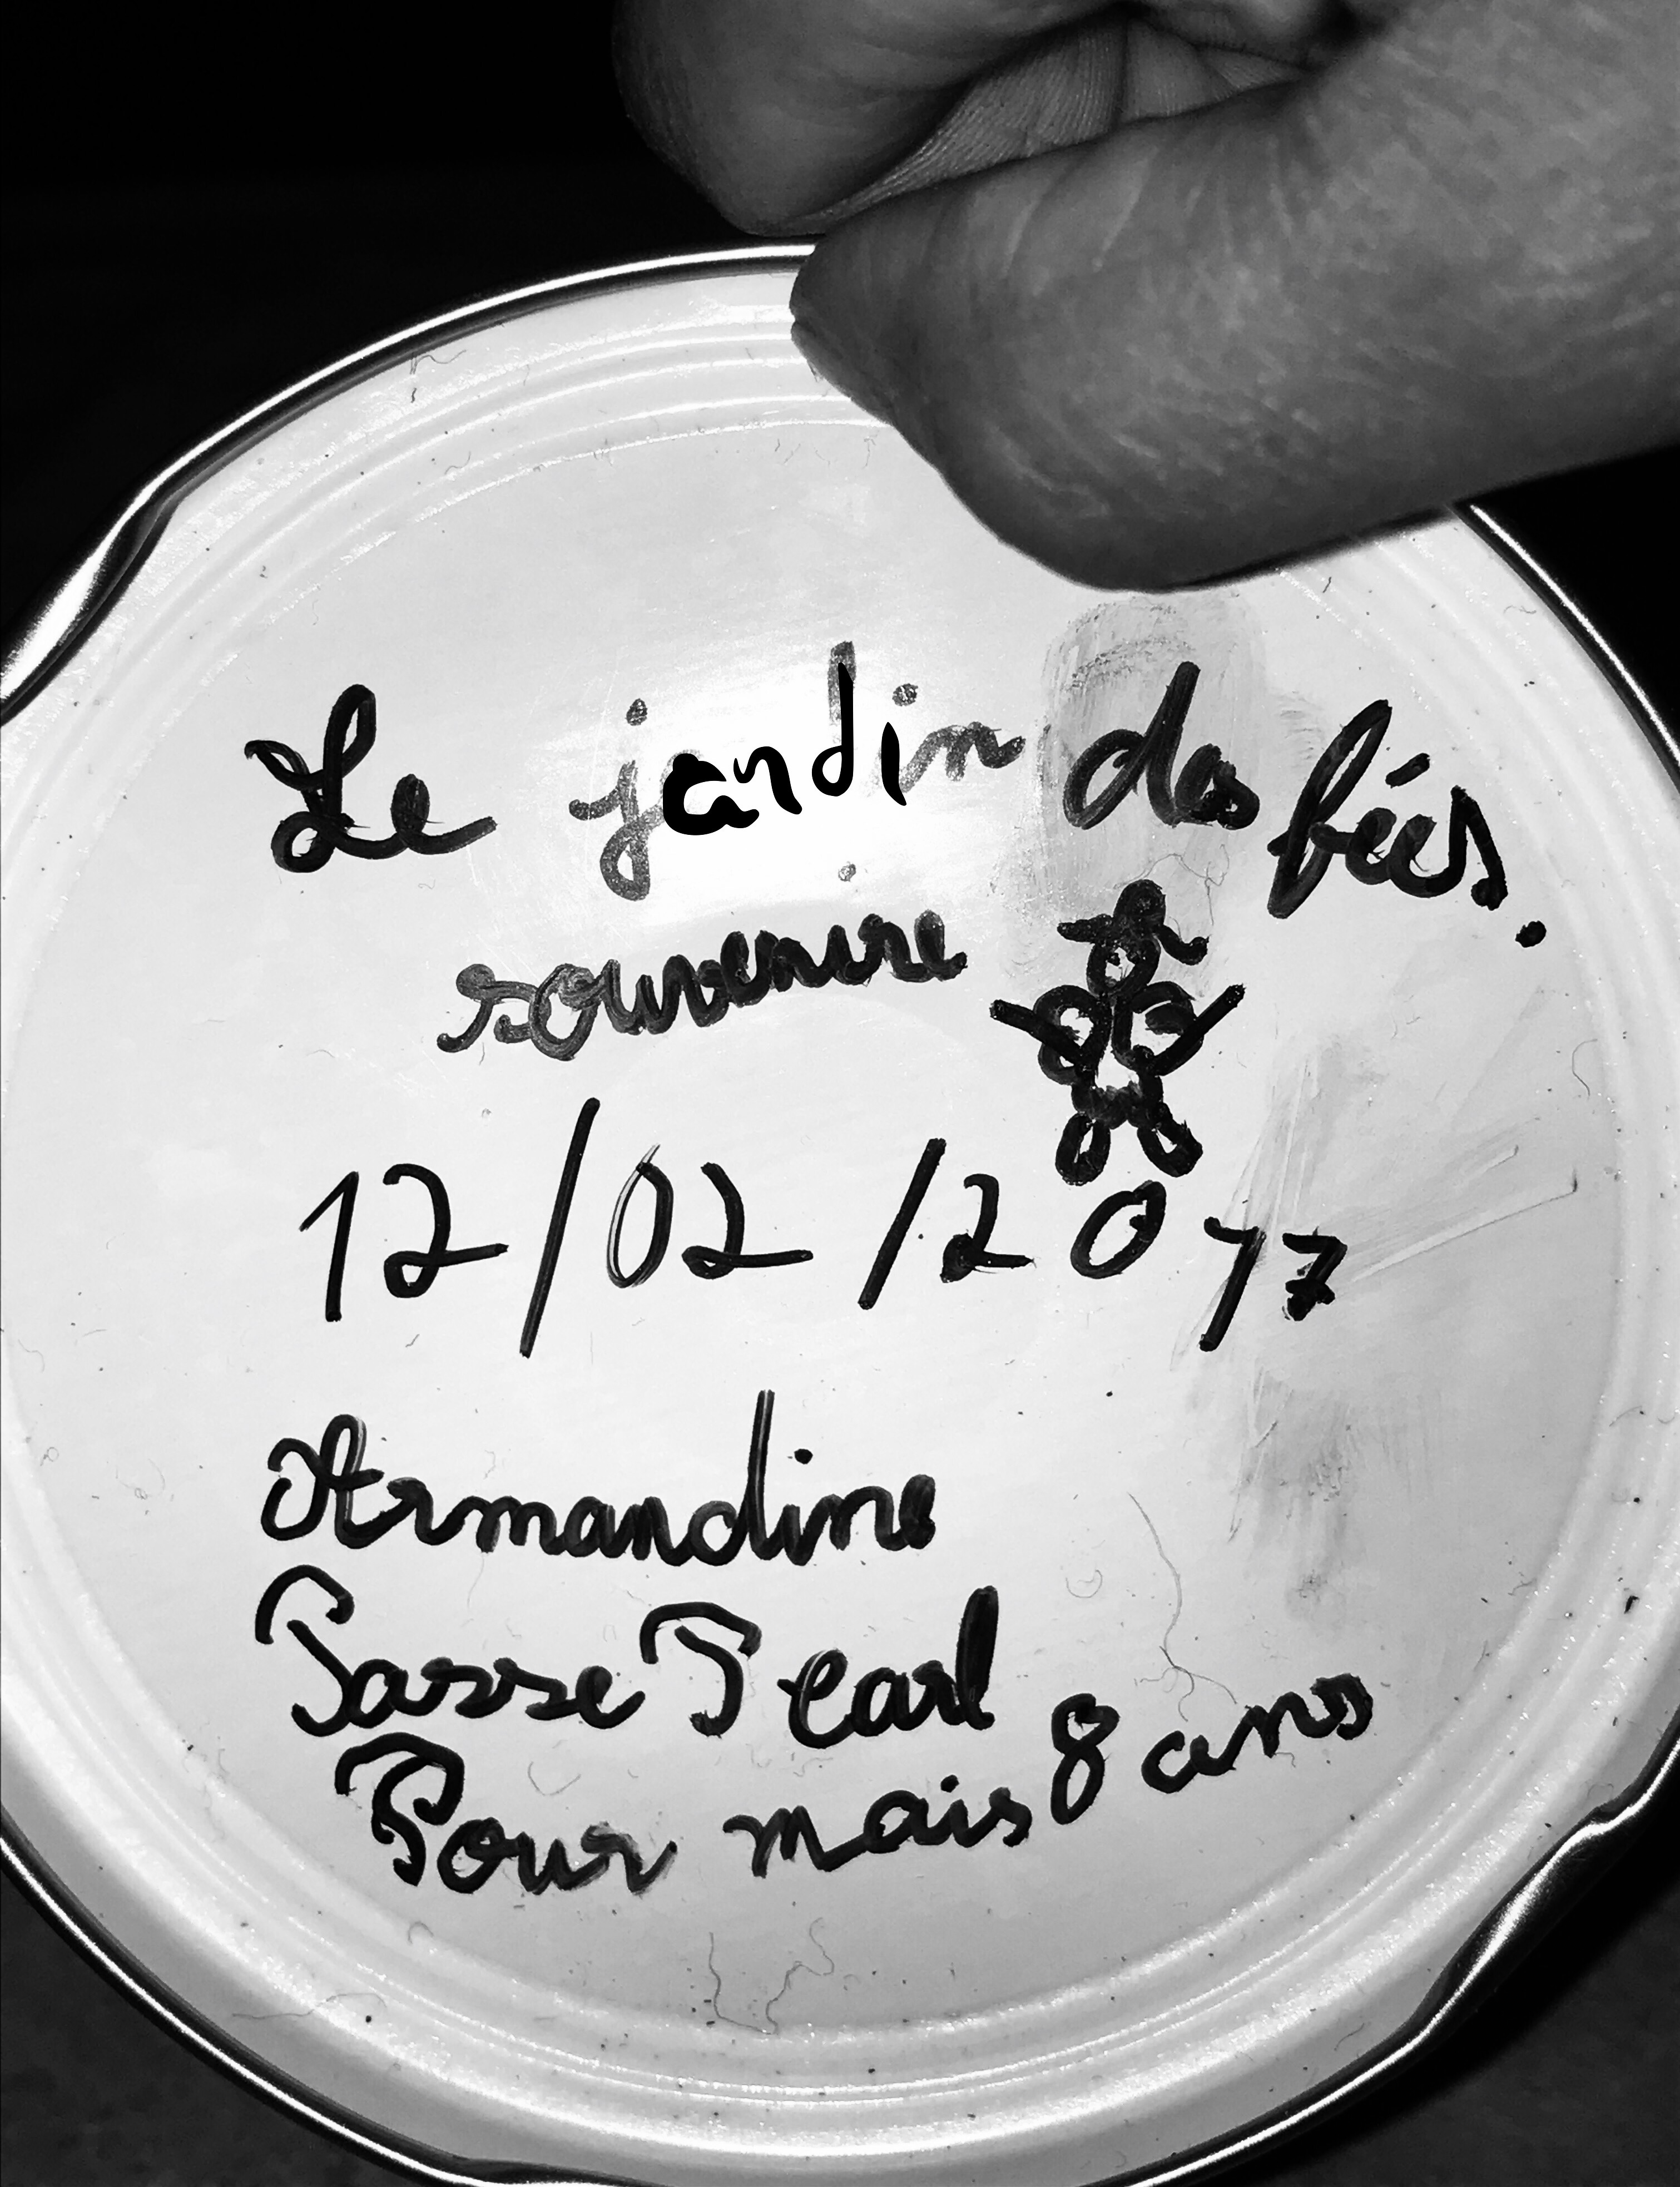 Le jardin des fées.
souvenire
12/02/2017
Armandine
Passe Pearl
Pour mais 8 ans